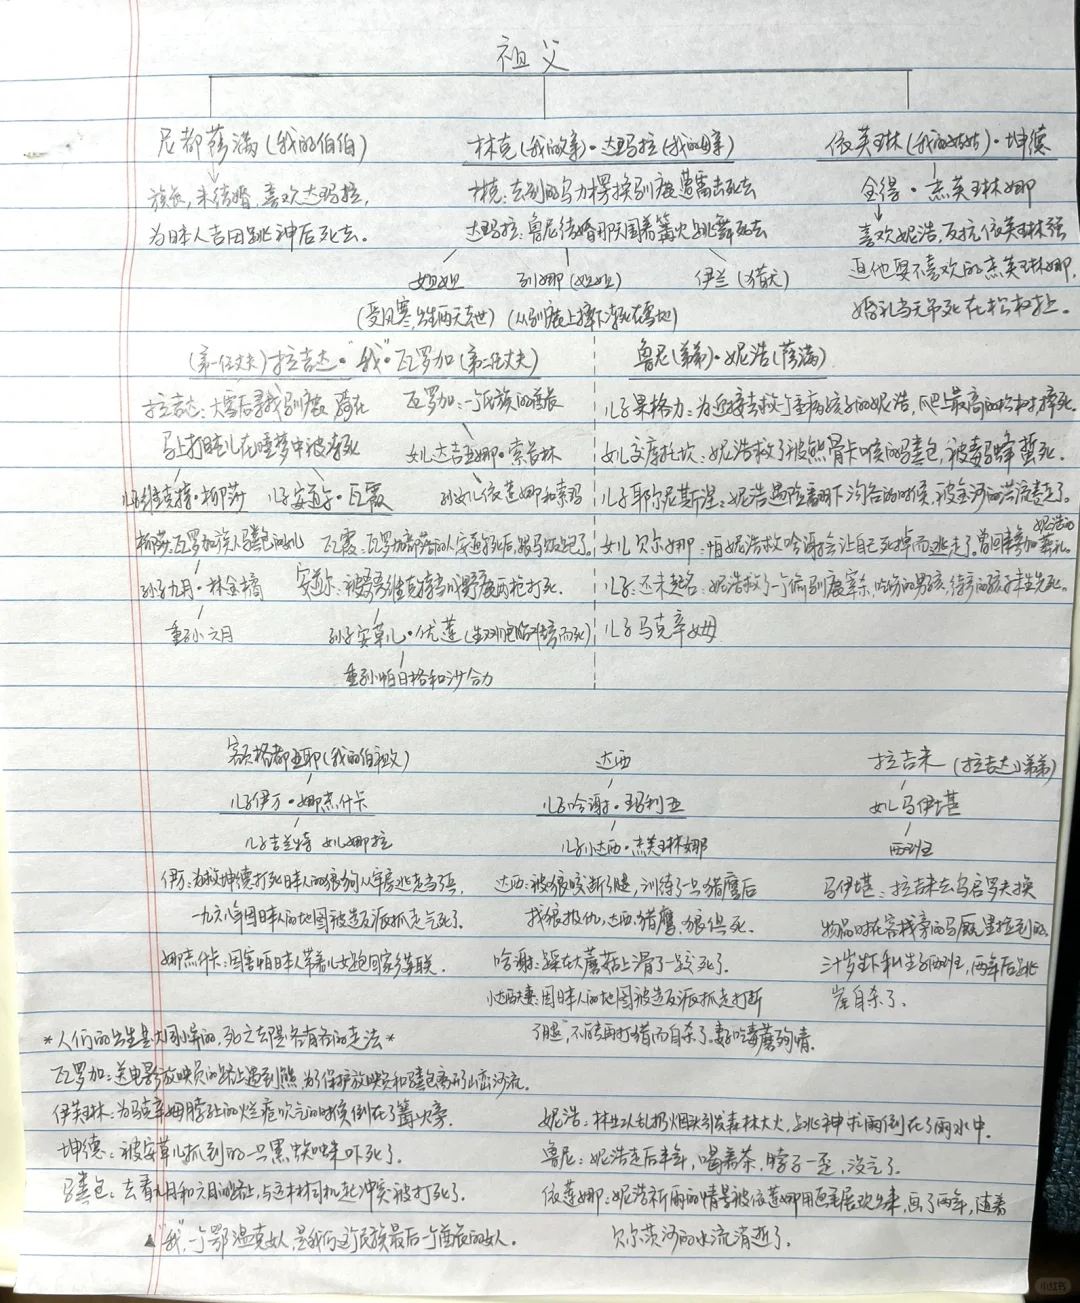 祖父
尼都萨满(我的伯伯)
族长,未结婚,喜欢达玛拉,
为日本人吉田跳神后死去。
林克(我的父亲)·达玛拉(我的母亲)
林克:去别的乌力楞换驯鹿遭雷击死去
达玛拉:鲁尼结婚那天围着篝火跳舞死去
姐姐 列娜(姐姐) 伊兰(猎犬)
(受风寒,出生两天去世) (从驯鹿上摔下冻死在雪地)
依芙琳(我的姑姑)·坤德
金得·杰芙琳娜
喜欢妮浩,反抗依芙琳强
迫他娶不喜欢的杰芙琳娜,
婚礼当天吊死在松树上。
(第一任丈夫)拉吉达·"我"·瓦罗加(第二任丈夫)
拉吉达:大雪后寻找驯鹿 骑在
马上打盹儿在睡梦中被冻死
瓦罗加:一个氏族的酋长
女儿达吉亚娜·索长林
孙女儿依莲娜和索玛
儿子维克特·柳莎 儿子安道尔·瓦霞
柳莎:瓦罗加族人马粪包的女儿
瓦霞:瓦罗加部落的人,安道尔死后,跟马贩子跑了。
孙子九月·林金橘
安道尔:被哥哥维克特当成野鹿两枪打死。
重孙六月
孙子安草儿·优莲(生双胞胎难产而死)
重孙帕日格和沙合力
鲁尼(弟弟)·妮浩(萨满)
儿子果格力:为迎接去救一个重病孩子的妮浩,爬上最高的松树,摔死。
女儿交库托坎:妮浩救了被熊骨卡喉的马粪包,被毒马蜂蜇死。
儿子耶尔尼斯涅:妮浩遇险翻下沟谷的时候,被金河的洪流卷走了。
女儿贝尔娜:怕妮浩救哈谢会让自己死掉而逃走了。曾回来参加妮浩的葬礼。
儿子:还未起名:妮浩救了一个偷驯鹿宰杀,吃伤的男孩,待产的孩子早生先死。
儿子马克辛姆
额格都亚耶(我的伯祖父)
儿子伊万·娜杰什卡
儿子吉兰特 女儿娜拉
伊万:为救坤德打死日本人的狼狗从军房逃走当兵,
一九六八年因日本人的地图被造反派抓走气死了。
娜杰什卡:因害怕日本人带着儿女跑回家乡苏联。
达西
儿子哈谢·玛利亚
儿子小达西·杰芙琳娜
达西:被狼咬断了腿,训练了一只猎鹰后
找狼报仇,达西、猎鹰、狼俱死。
哈谢:踩在大蘑菇上滑了一跤死了。
小达西夫妻:因日本人的地图被造反派抓走打断
了腿,不能再打猎而自杀了。妻子吃毒蘑殉情。
拉吉米(拉吉达的弟弟)
女儿马伊堪
西班
马伊堪:拉吉米去乌启罗夫换
物品时在客栈旁的马厩里捡到的。
三十岁生下私生子西班,两年后跳
崖自杀了。
*人们的出生是大同小异的,死亡却是各有各的走法*
瓦罗加:送电影放映员的路上遇到熊,为了保护放映员和马粪包离开山峦河流。
伊芙琳:为马克辛姆脖子上的烂疮吹气的时候倒在了篝火旁。
坤德:被安草儿抓到的一只黑蜘蛛吓死了。
马粪包:去看九月和六月的路上,与运木材司机起冲突被打死了。
妮浩:林业工人乱扔烟头引发森林大火,跳神求雨倒在了雨水中。
鲁尼:妮浩走后半年,喝着茶,脖子一歪,没气了。
依莲娜:妮浩祈雨的情景被依莲娜用画笔展现出来,画了两年,随着
贝尔茨河的水流消逝了。
▲"我",一个鄂温克女人,是我们这个民族最后一个酋长的女人。
小红书